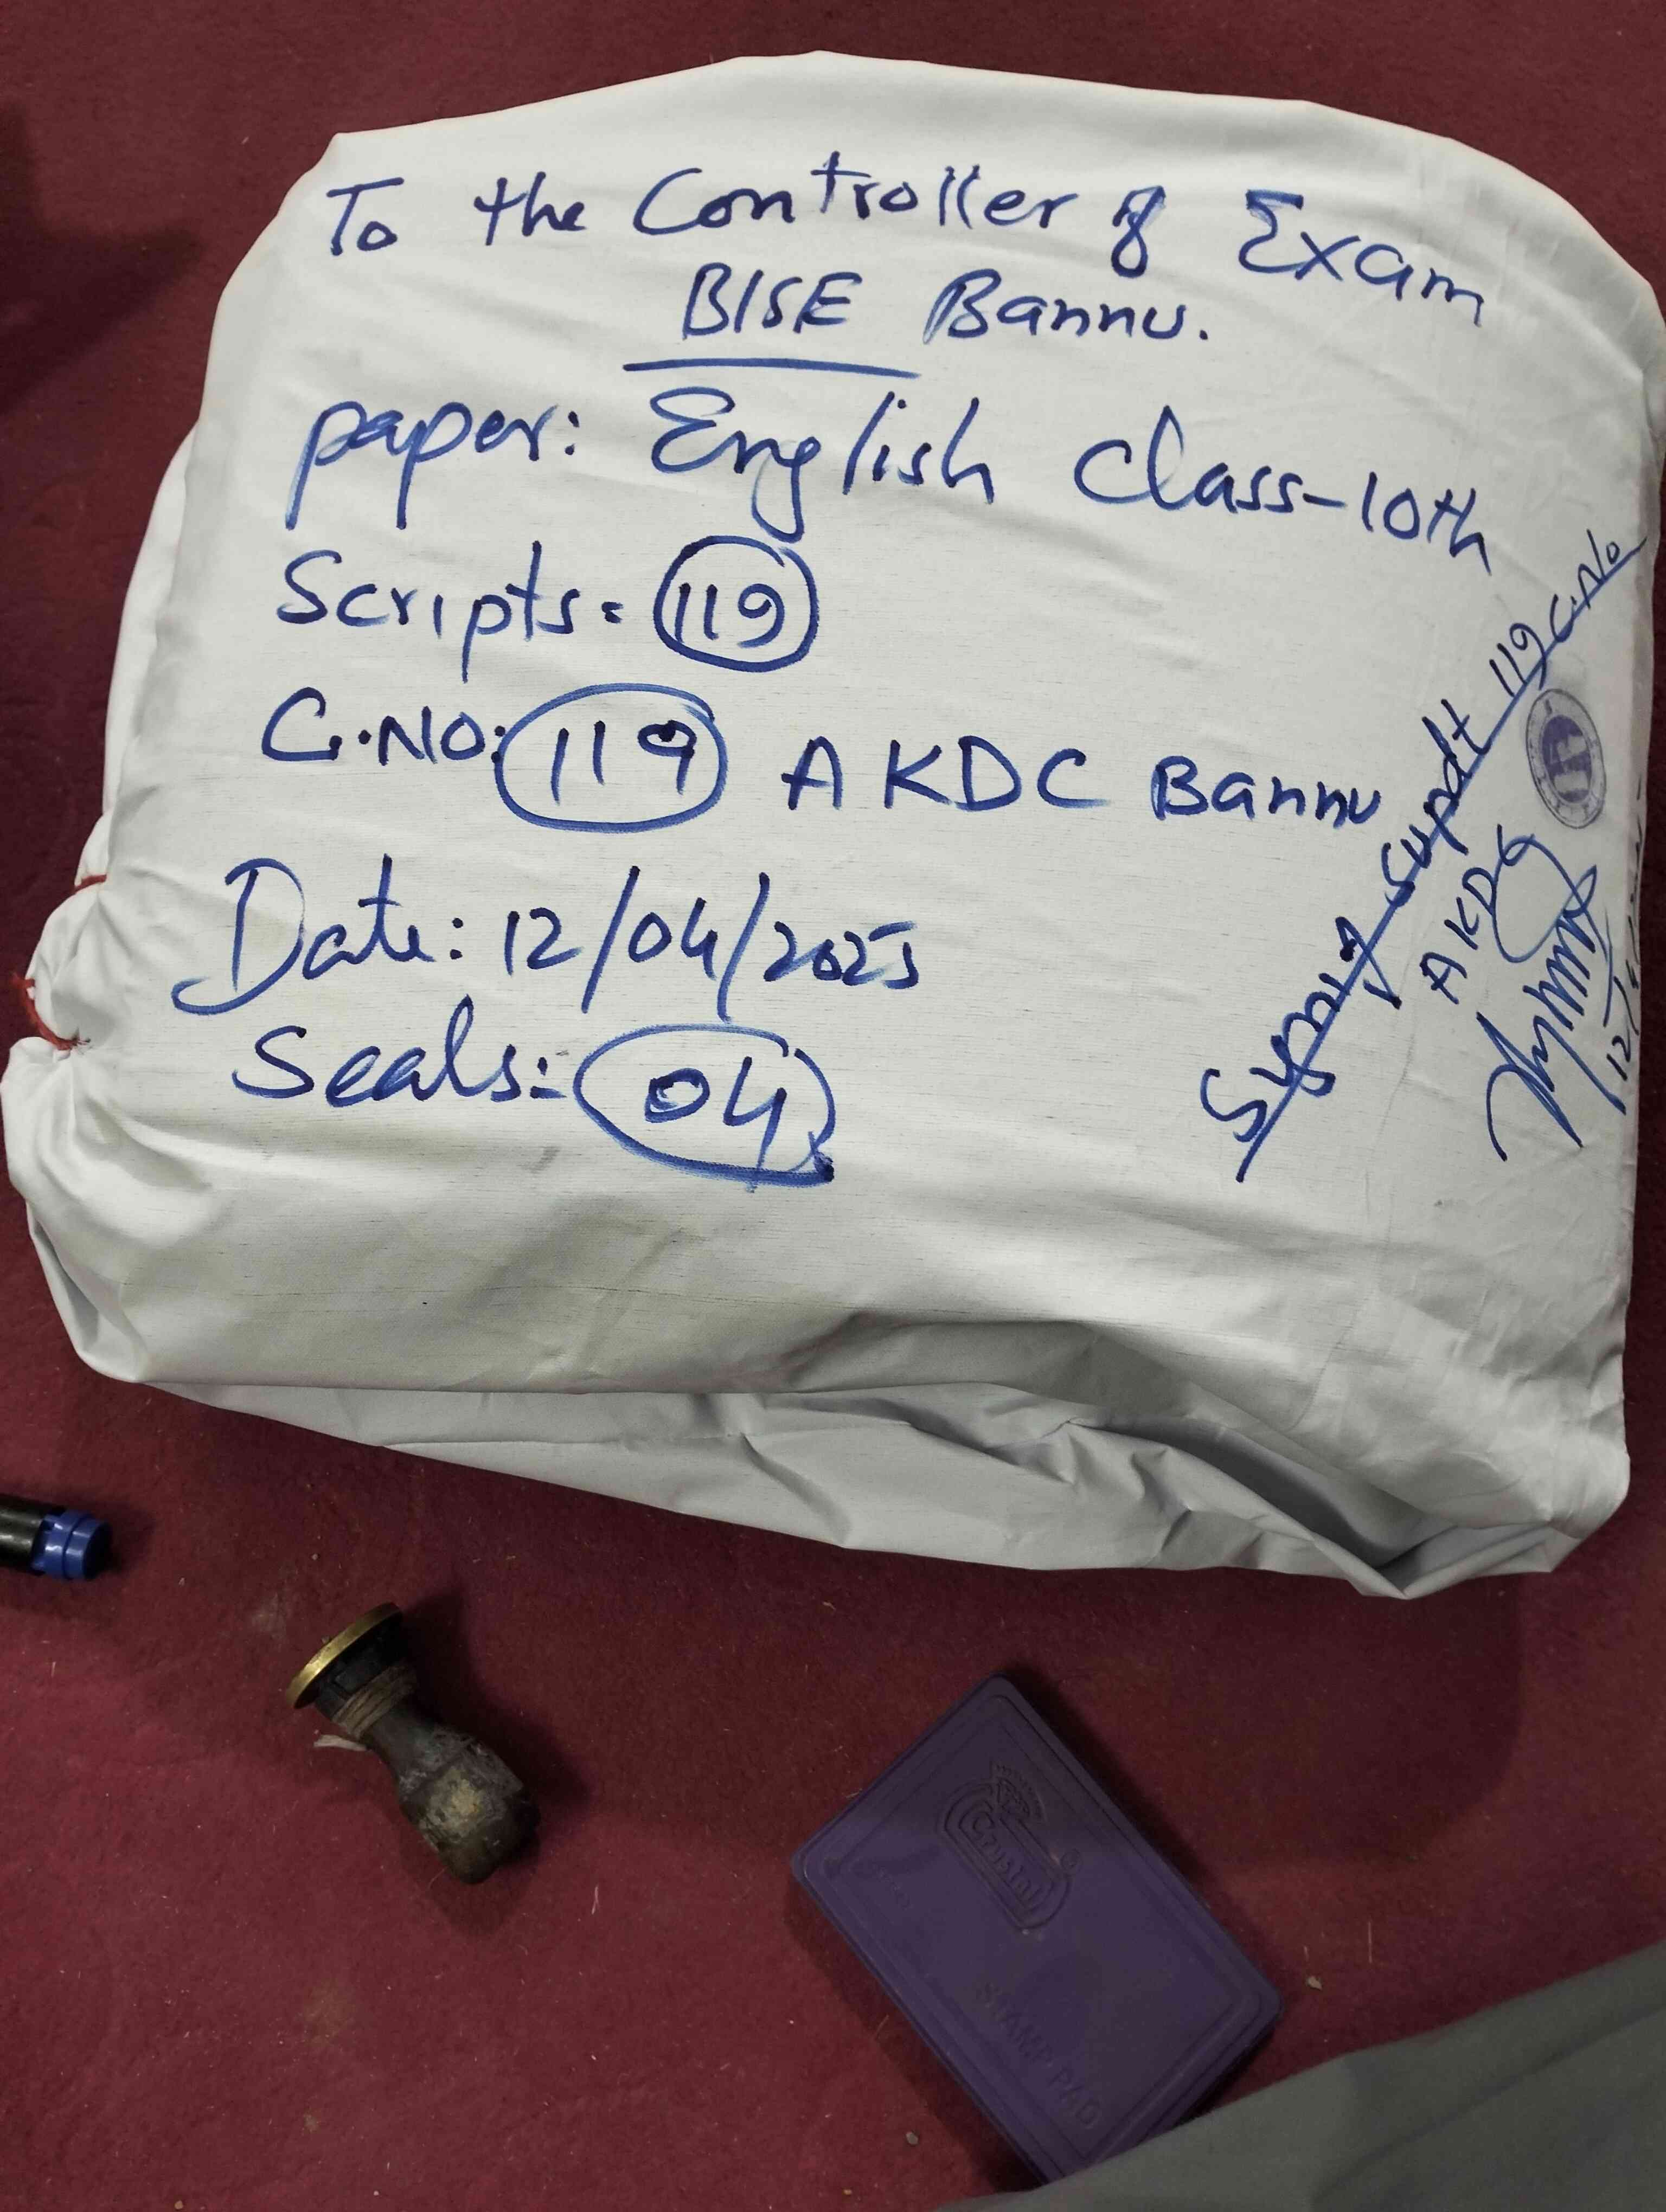 To the Controller of Exam
BISE Bannu.
paper: English Class-10th
Scripts: 119
C.NO: 119 AKDC Bannu
Date: 12/04/2025
Seals: 04
Supdt 119 C.No
AKDC
12/
Crystal
STAMP PAD